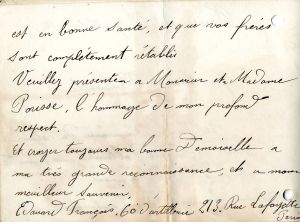 est en bonne santé, et que vos frères
sont complètement rétablis
Veuillez presenter a Monsieur et Madame
Pousse, l'hommage de mon profond
respect.
Et croyez toujours ma bonne Demoiselle a
ma très grande reconnaissance, et a mon
meuilleur souvenir.
Edouard François, 60 d'artillerie 213, Rue Lafayette